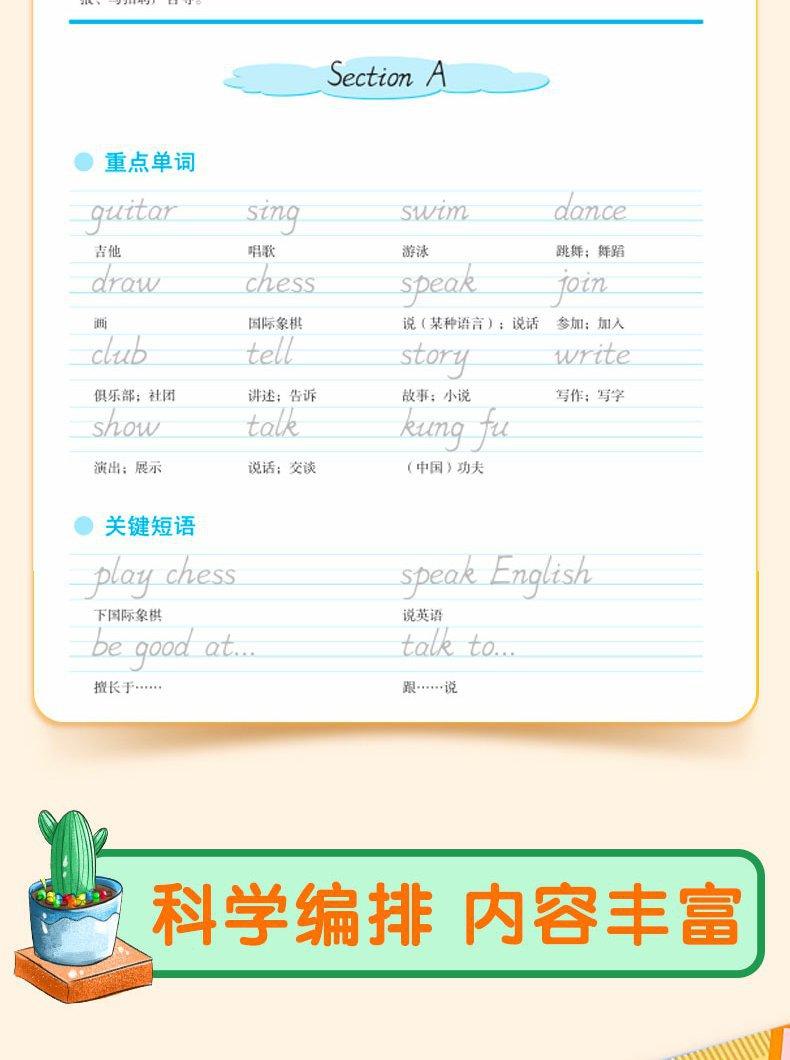 Section A
重点单词
guitar sing swim dance
吉他 唱歌 游泳 跳舞；舞蹈
draw chess speak join
画 国际象棋 说（某种语言）；说话 参加；加入
club tell story write
俱乐部；社团 讲述；告诉 故事；小说 写作；写字
show talk kung fu
演出；展示 说话；交谈 （中国）功夫
关键短语
play chess speak English
下国际象棋 说英语
be good at... talk to...
擅长于…… 跟……说
科学编排 内容丰富